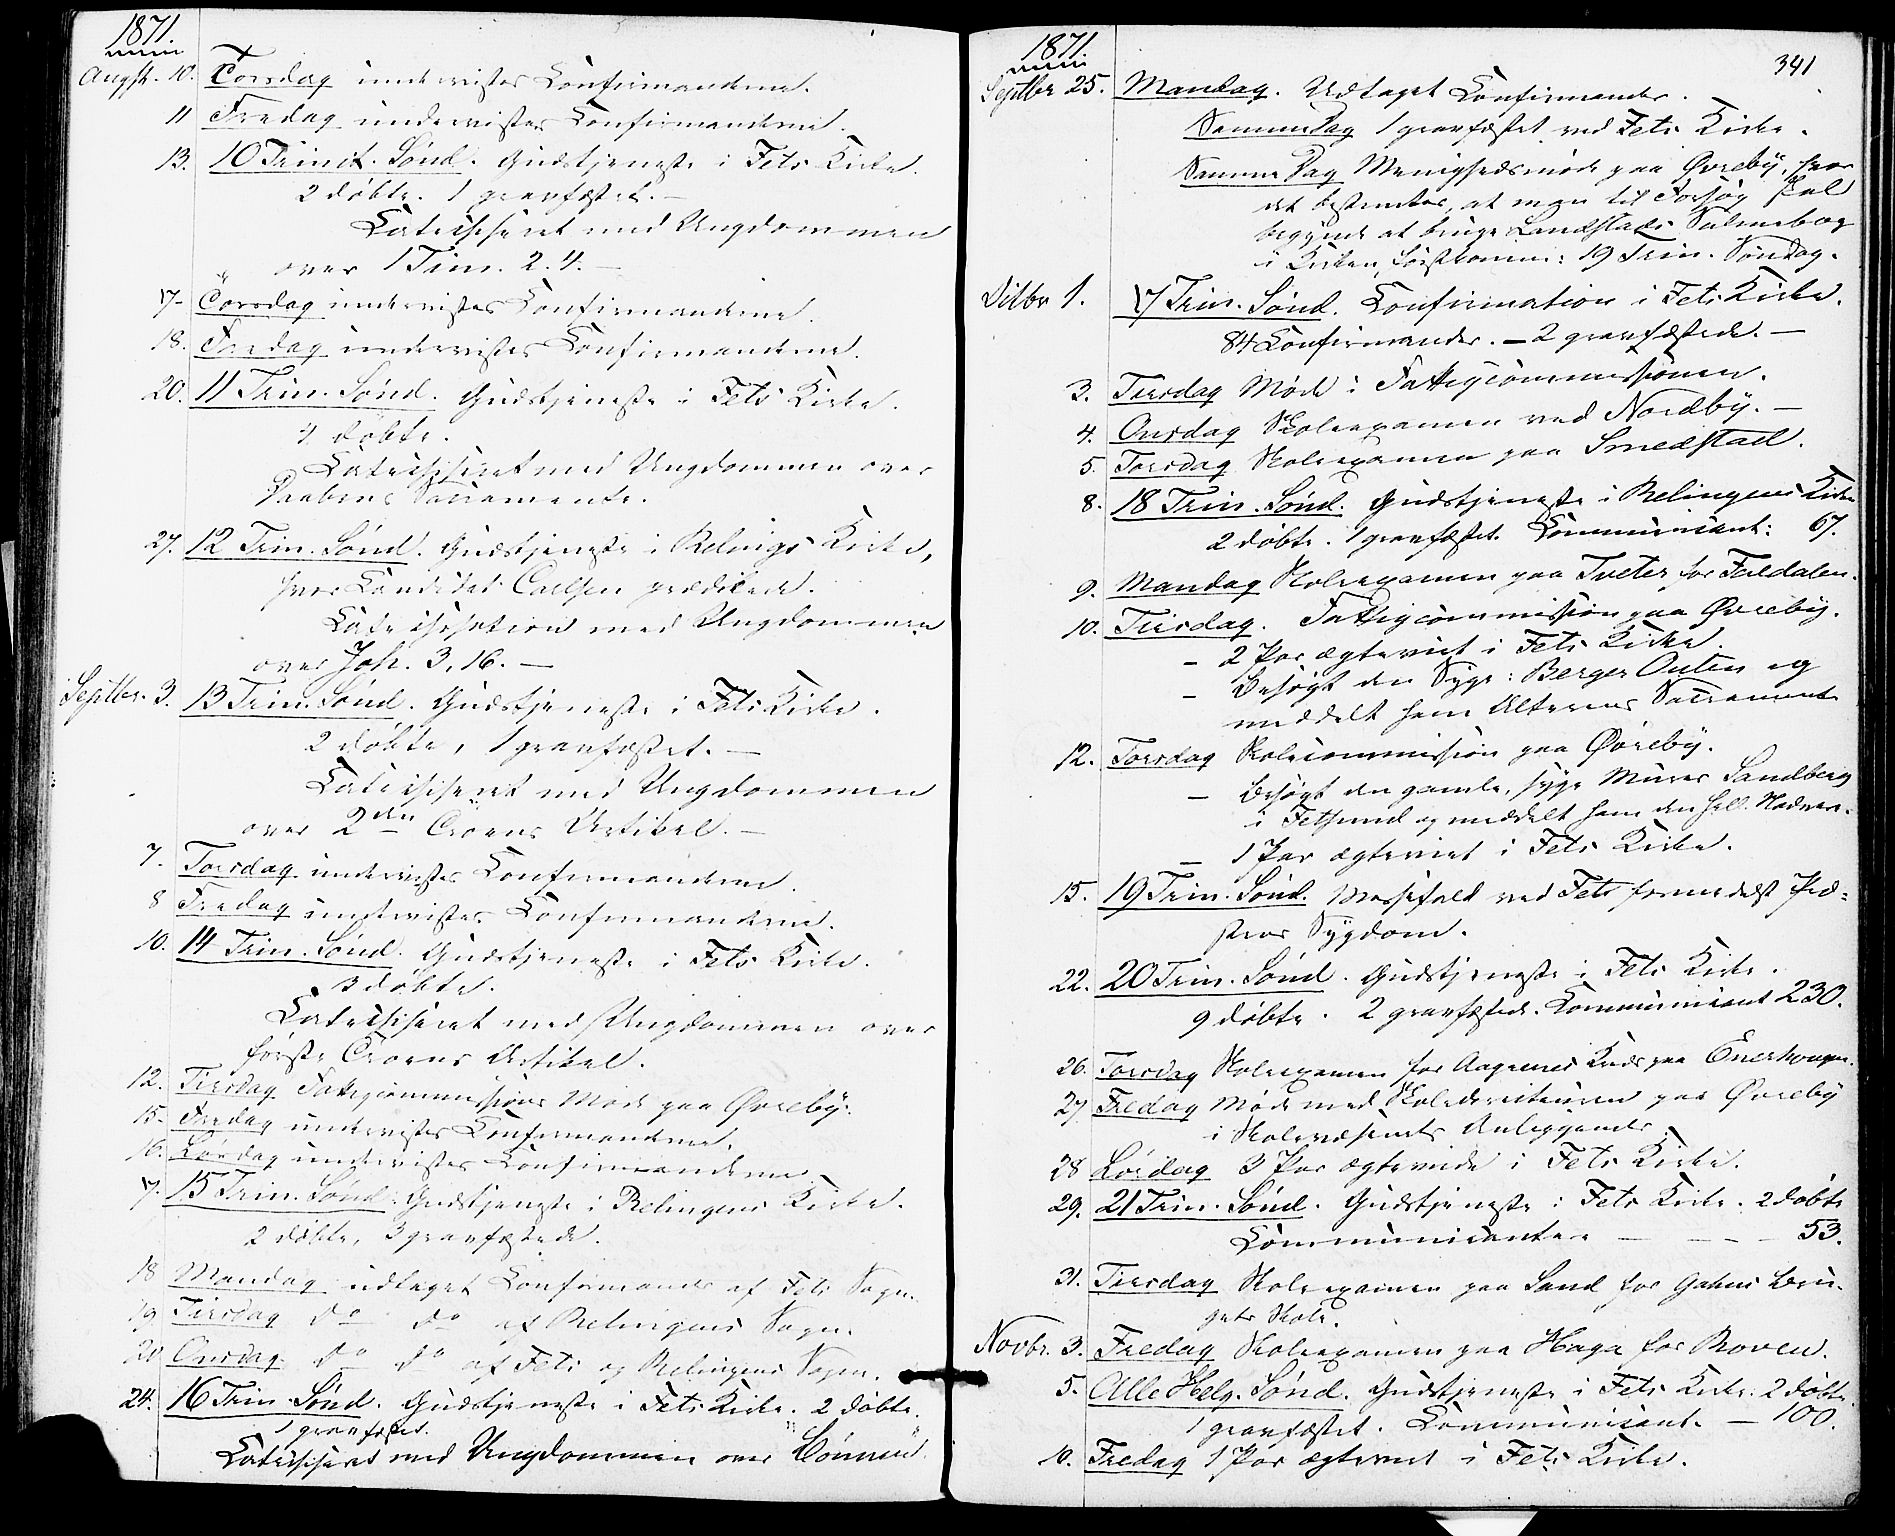 1871.
Augst. 10. Torsdag undervistes Confirmanderne.
11 Fredag undervistes Confirmanderne.
13. 10 Trinit. Sønd. Gudstjeneste i Fets Kirke.
2 døbte. 1 gravfæstet. —
Catechiseret med Ungdommen
over 1 Tim. 2.4. —
17. Torsdag undervistes Confirmanderne.
18. Fredag undervistes Confirmanderne.
20. 11 Trin. Sønd. Gudstjeneste i Fets Kirke.
4 døbte.
Catechiseret med Ungdommen over
Daabens Sacramente.
27. 12 Trin. Sønd. Gudstjeneste i Relings Kirke,
hvor Candidat Carlsen prædikede.
Catechisation med Ungdommen
over Joh. 3,16. —
Septbr. 3. 13 Trin. Sønd. Gudstjeneste i Fets Kirke.
2 døbte, 1 gravfæstet. —
Catechiseret med Ungdommen
over 2den Troens Artikel. —
7. Torsdag undervistes Confirmanderne.
8 Fredag undervistes Confirmanderne.
10. 14 Trin. Sønd. Gudstjeneste i Fets Kirke.
3 døbte.
Catechiseret med Ungdommen over
første Troens Artikel.
12. Tirsdag Fattigcommissions Møde paa Øvreby.
15. Fredag undervistes Confirmanderne.
16. Lørdag undervistes Confirmanderne.
17. 15 Trin. Sønd. Gudstjeneste i Relingens Kirke.
2 døbte, 3 gravfæstede.
18 Mandag udtaget Confirmander af Fets Sogn.
19 Tirsdag do do af Relingens Sogn.
20 Onsdag do do af Fets og Relingens Sogn.
24. 16 Trin. Sønd. Gudstjeneste i Fets Kirke. 2 døbte.
1 gravfæstet.
Catechiseret med Ungdommen over Bønnen.
1871.
341
Septbr 25. Mandag. Udtaget Confirmander.
Samme Dag 1 gravfæstet ved Fets Kirke.
Samme Dag Menighedsmøde paa Øvreby, hvor
det bestemtes, at man til Forsøg skal
begynde at bruge Landstads Salmebog
i Kirken, førstkomm: 19 Trin. Søndag.
Octbr 1. 17 Trin. Sønd. Confirmation i Fets Kirke.
84 Confirmander. — 2 gravfæstede. —
3. Tirsdag Møde i Fattigcommissionen.
4. Onsdag Skoleexamen ved Nordby. —
5. Torsdag Skoleexamen paa Smedstad.
8. 18 Trin. Sønd. Gudstjeneste i Relingens Kirke
2 døbte. 1 gravfæstet. Communicant: 67.
9. Mandag Skoleexamen paa Tveter for Faldalen.
10. Tirsdag. Fattigcommission paa Øvreby.
— 2 Par ægteviet i Fets Kirke.
— Besøgt den Syge: Berger Outen og
meddelt ham Alterens Sacramente
12. Torsdag Skolecommission paa Øvreby.
— Besøgt den gamle, syge Murer Sandberg
i Fetsund og meddelt ham den hell. Nadvere.
— 1 Par ægteviet i Fets Kirke.
15. 19 Trin. Sønd. Messefald ved Fets formedelst Præ-
stens Sygdom.
22. 20 Trin. Sønd. Gudstjeneste i Fets Kirke.
9 døbte. 2 gravfæstede. Communicant 230.
26. Torsdag Skoleexamen for Aagrenes Kreds paa Enerhougen.
27 Fredag Møde med Skoledirecteuren paa Øvreby
i Skolevæsenets Anliggender.
28 Lørdag 3 Par ægteviede i Fets Kirke.
29. 21 Trin. Sønd. Gudstjeneste i Fets Kirke. 2 døbte
Communicanter — — — 53.
31. Tirsdag Skoleexamen paa Sand for Gahns Bru-
gets Skole.
Novbr. 3. Fredag Skoleexamen paa Haga for Roven.
5. Alle Helg. Sønd. Gudstjeneste i Fets Kirke. 2 døbte.
1 gravfæstet. Communicant. — 100.
10. Fredag 1 Par ægteviet i Fets Kirke.